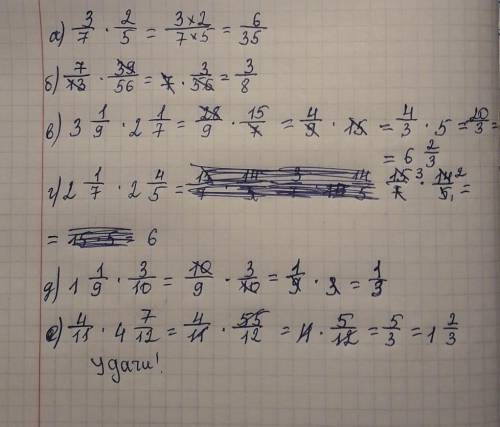 а) 3/7 · 2/5 = 3×2/7×5 = 6/35
б) 7/13 · 39/56 = 7 · 3/56 = 3/8
в) 3 1/9 · 2 1/7 = 28/9 · 15/7 = 4/9 · 15 = 4/3 · 5 = 20/3 =
= 6 2/3
г) 2 1/7 · 2 4/5 = 15 3/7 · 14 2/5 1 =
= 6
д) 1 1/9 · 3/10 = 10/9 · 3/10 = 1/9 · 3 = 1/3
е) 4/11 · 4 7/12 = 4/11 · 55/12 = 4 · 5/12 = 5/3 = 1 2/3
Удачи!